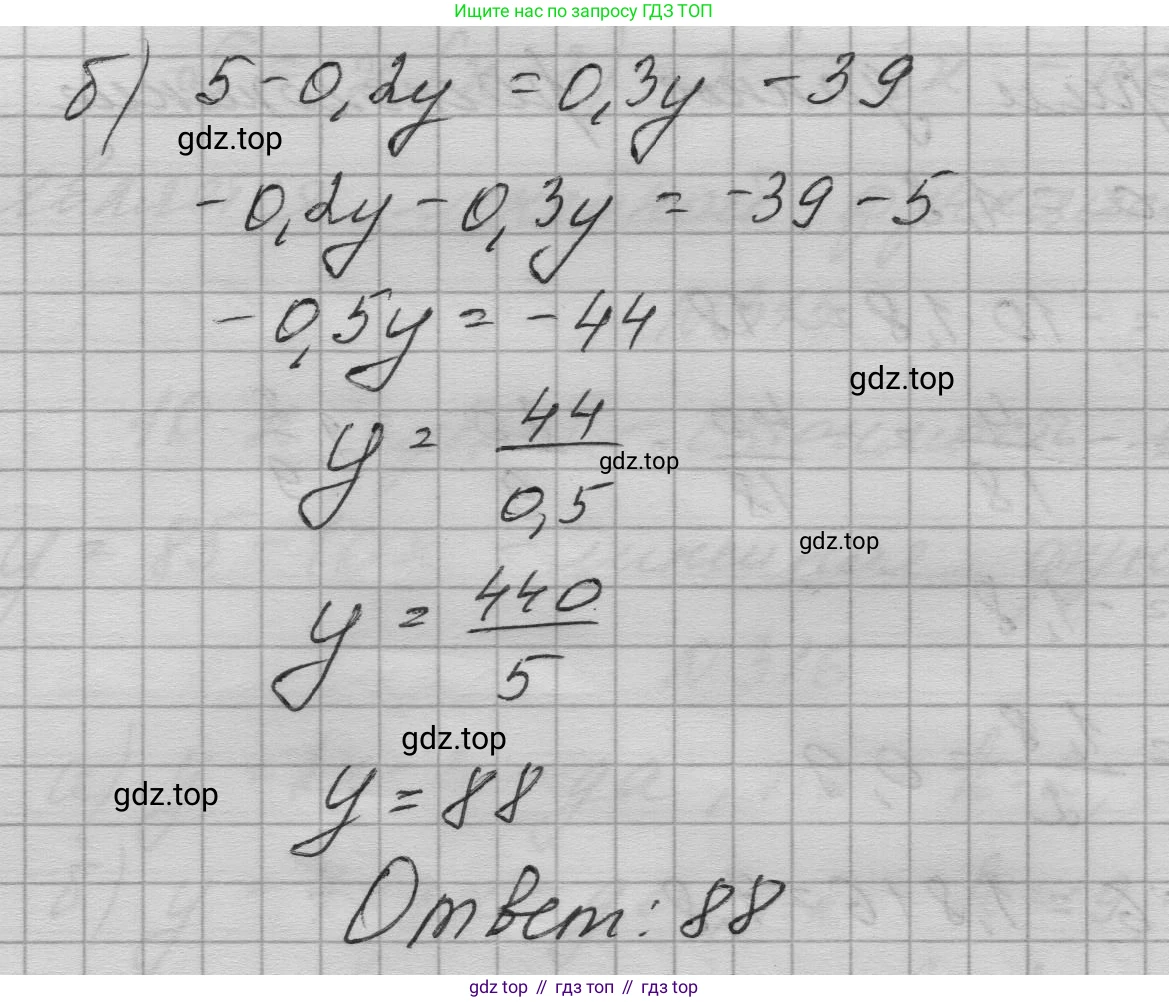 Ищите нас по запросу ГДЗ ТОП
б) 5 - 0,2y = 0,3y - 39
gdz.top
-0,2y - 0,3y = -39 - 5
-0,5y = -44
gdz.top
y = 44/0,5
gdz.top
gdz.top
y = 440/5
gdz.top
gdz.top
y = 88
Ответ: 88
gdz top // гдз топ // гдз top